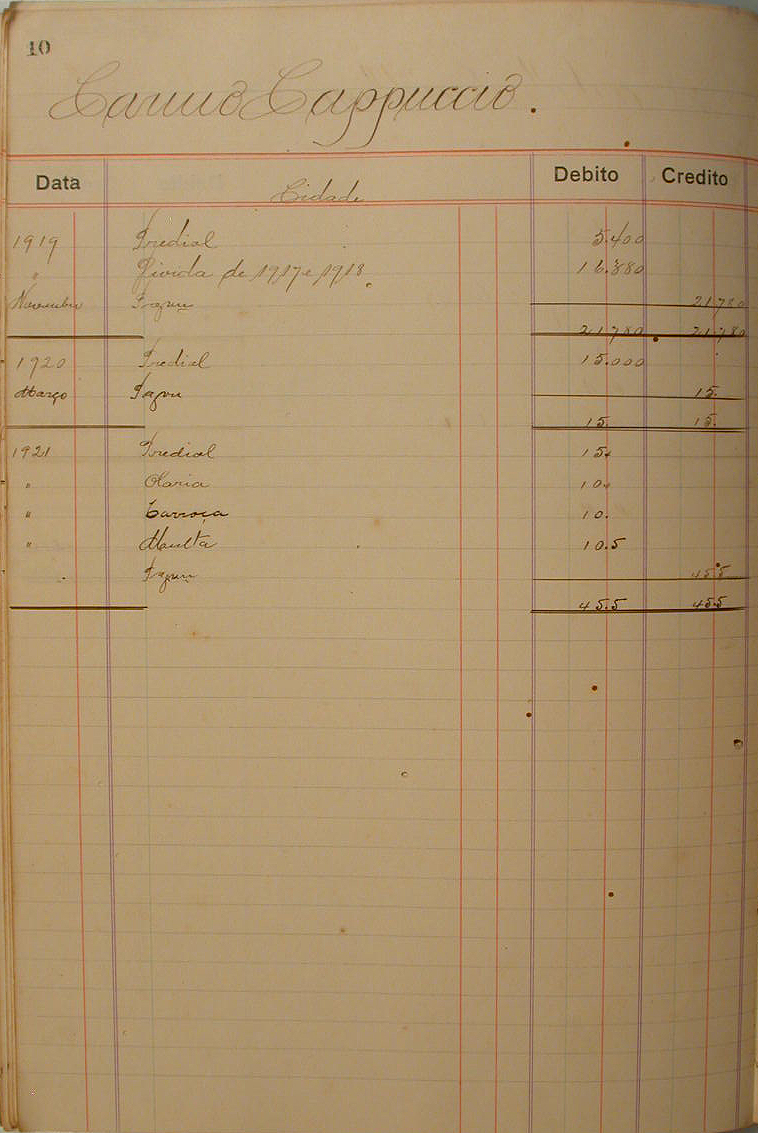 10
Carmo Cappuccio.
Data Cidade Debito Credito
1919 Predial 5.400
" Divida de 1917 e 1918. 16.380
Novembro Pagou 21780
21780 21.780
1920 Predial 15.000
Março Pagou 15.
15. 15.
1921 Predial 15.
" Olaria 10.
" Carroça 10.
" Multa 10.5
Pagou 45.5
45.5 45.5